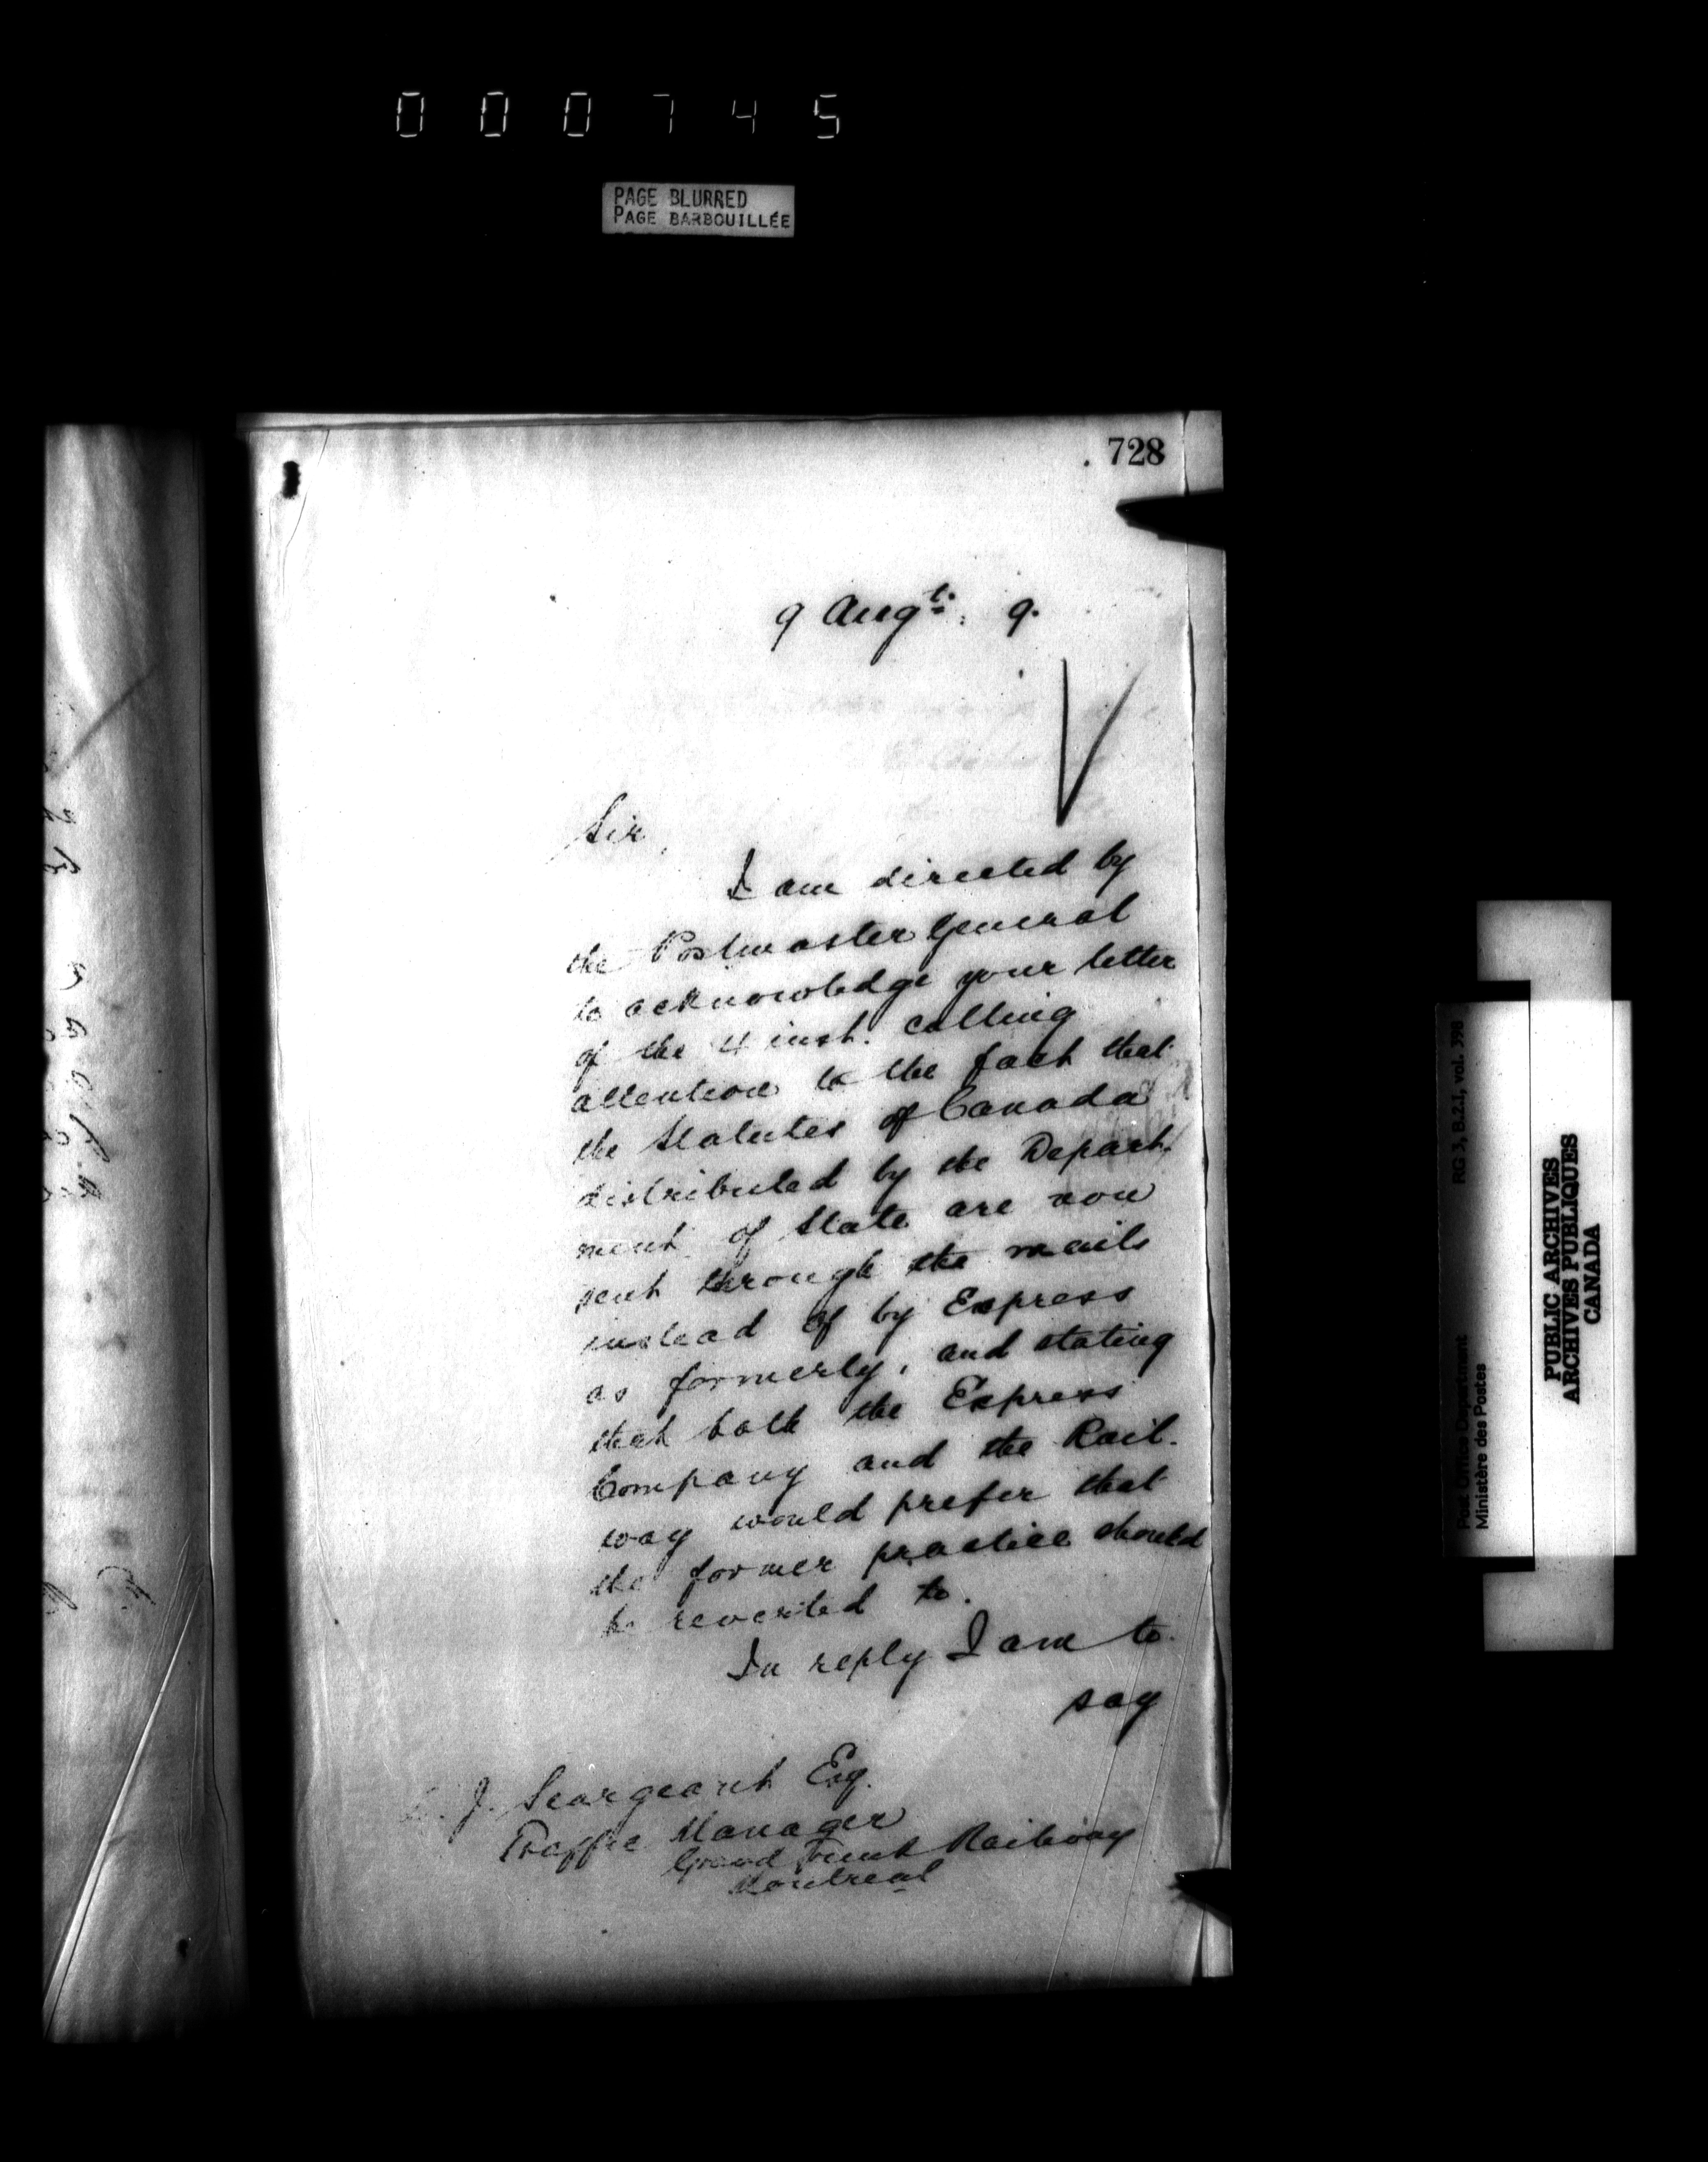 000745
PAGE BLURRED
PAGE BARBOUILLÉE
728
9 Augt. 9.
Sir,
I am directed by
the Postmaster General
to acknowledge your letter
of the 4 inst. calling
attention to the fact that
the Statutes of Canada
distributed by the Depart.
ment of State are now
sent through the mails
instead of by Express
as formerly, and stating
that both the Express
Company and the Rail.
way would prefer that
the former practice should
be reverted to.
In reply I am to
say
J. Seargeant Esq.
Traffic Manager
Grand Trunk Railway
Montreal
RG 3, B.2.1, vol. 398
Post Office Department
Ministère des Postes
PUBLIC ARCHIVES
ARCHIVES PUBLIQUES
CANADA